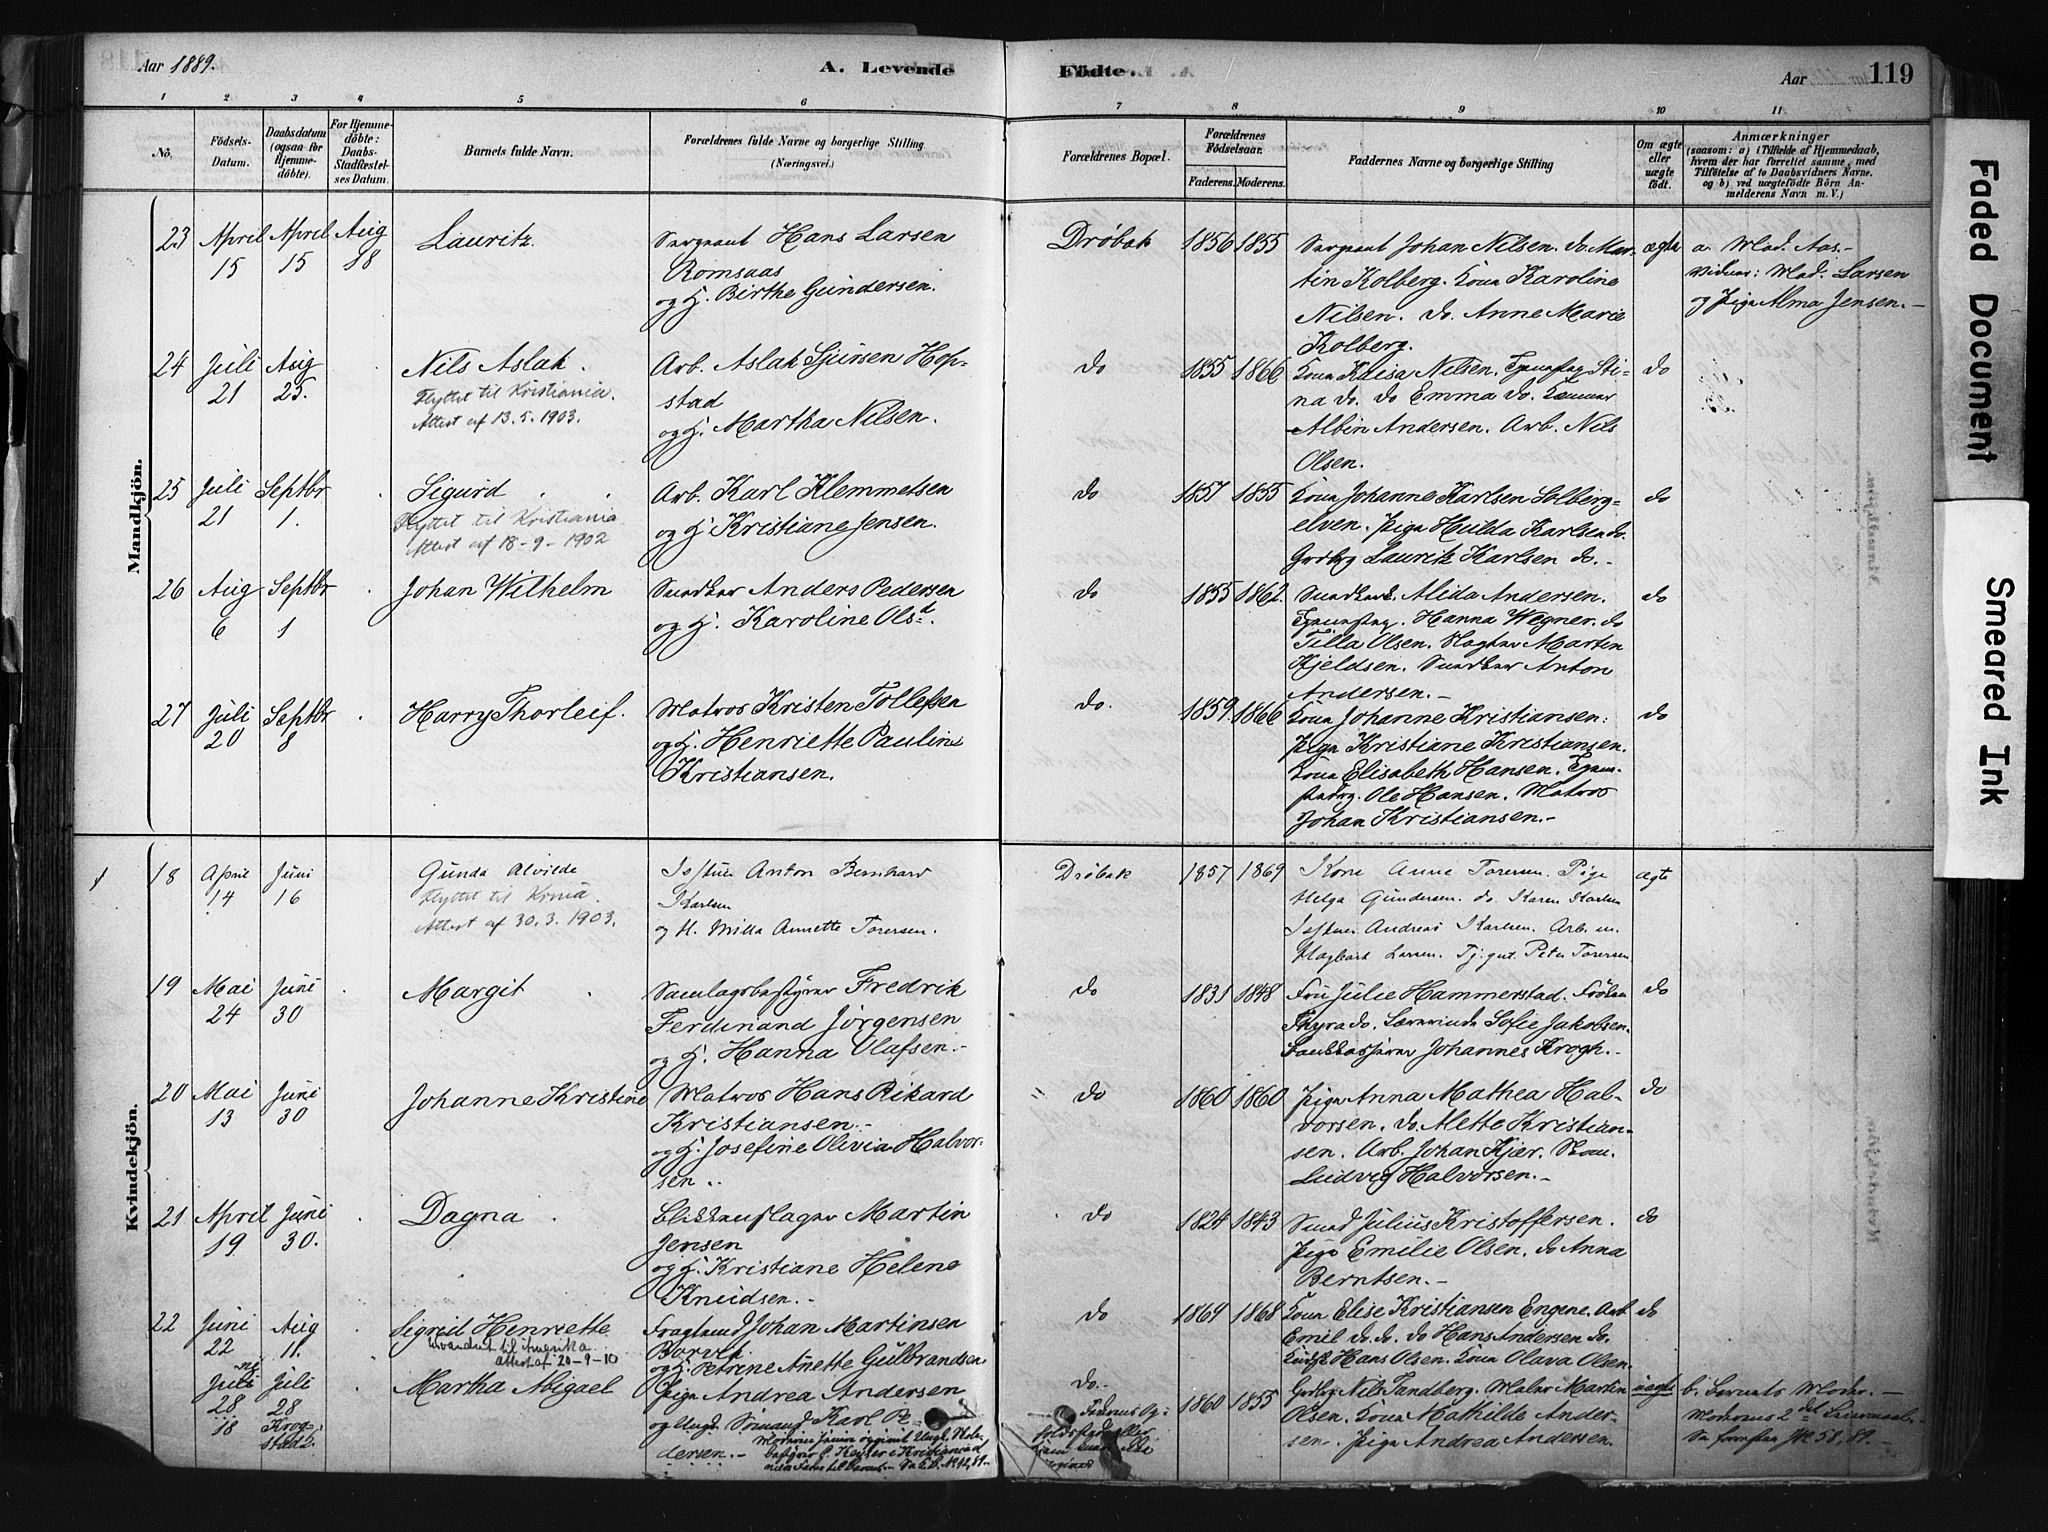 Aar 1889.
A. Levende
Fødte.
Aar
119
1 2 3 4 5 6 7 8 9 10 11
No.
Fødsels-Datum.
Daabsdatum (ogsaa for Hjemme-døbte).
For Hjemme-døbte: Daabs-Stadfæstel-ses Datum.
Barnets fulde Navn.
Forældrenes fulde Navne og borgerlige Stilling (Næringsvei.)
Forældrenes Bopæl.
Forældrenes Fødselsaar.
Faderens. Moderens.
Faddernes Navne og borgerlige Stilling
Om ægte eller uægte født.
Anmærkninger
(saasom: a) i Tilfælde af Hjemmedaab, hvem der har forrettet samme, med Tilføielse af to Daabsvidners Navne. og b) ved uægtefødte Børn Anmelderens Navn m. V.)
Mandkjøn.
23 April 15 April 15 Aug 18 Lauritz. Sergeant Hans Larsen
Romsaas
og H. Birthe Gundersen.
Drøbak 1856 1855 Sergeant Johan Nilsen. do. Mar-
tin Kolberg. Kone Karoline
Nilsen. do. Anne Marie
Kolberg.
ægte a. Mad. Aas.-
Vidner: Mad. Larsen
og Pige Alma Jensen.-
24 Juli 21 Aug 25. Nils Aslak.
Flyttet til Kristiania.
Attest af 13.5.1903.
Arb. Aslak Sjursen Hop-
stad
og H. Martha Nilsen.
do 1855 1866 Kone Nilsen. Sti-
na do. do Emma do.
Albin Andersen. Arb. Nils
Olsen.
do
25 Juli 21 Septbr 1. Sigurd
Flyttet til Kristiania
Attest af 18-9-1902
Arb. Karl Klemmetsen
og H. Kristiane Jensen.
do 1857 1855 Kone Johanne Karlsen Solberg-
elven. Pige Hulda Karlsen do.
Lauritz Karlsen do.-
do
26 Aug 6 Septbr 1 Johan Wilhelm
Snedker Anders Pedersen
og H. Karoline Olsd.
do 1855 1862. Alida Andersen.
Hanna Wegner. do
Tilla Olsen. Slagter Martin
Kjeldsen. Snedker Anton
Andersen.-
do
27 Juli 20 Septbr 8 Harry Thorleif.
Matros Kristen Tollefsen
og H. Henriette Pauline
Kristiansen.
do. 1859. 1866 Kone Johanne Kristiansen.
Pige Kristiane Kristiansen.
Kone Elisabeth Hansen.
Ole Hansen. Matros
Johan Kristiansen.-
do
Kvindekjøn.
18 April 14 Juni 16 Gunda Alvilde
Flyttet til Krnia.
Attest af 30.3.1903.
Anton Bernhard
Karlsen
og H. Milla Annette Torersen.
Drøbak 1857 1869 Kone Anne Torersen. Pige
Helga Gundersen. do. Karen Karlsen
Andreas Karlsen. Arb. m.
Hagbart Larsen. Tj.gut. Peter Torersen
ægte
19 Mai 24 Juni 30 Margit
Samlagsbestyrer Fredrik
Ferdinand Jørgensen
og H. Hanna Olafsen.-
do 1831 1848 Fru Julie Hammerstad. Frøken
Thyra do. Lærerinde Sofie Jakobsen.
Johannes Krogh.-
do
20 Mai 13 Juni 30 Johanne Kristine
Matros Hans Rikard
Kristiansen.-
og H. Josefine Olivia Halvor-
sen..
do 1860 1860 Pige Anna Mathea Hal-
vorsen. do. Alette Kristian-
sen. Arb. Johan Kjær.
Ludvig Halvorsen.-
do
21 April 19 Juni 30. Dagna
Blikkenslager Martin
Jensen
og H. Kristiane Helene
Knudsen.-
do 1824 1843 Smed Julius Kristoffersen.
Pige Emilie Olsen. do Anna
Berntsen.-
do
22 Juni 22 Aug 11. Sigrid Henriette
Udvandret til Amerika
attest af 20-9-10
Johan Martinsen
Borvik
og H. Petrine Anette Gulbrandsen
do 1869 1868 Kone Elise Kristiansen Engene. Arb
Emil do. do. do Hans Andersen do.
Hans Olsen. Kone Olava Olsen.
do
Juli 28 18 Juli 28 Krog-
stad
Martha Abigael
Pige Andrea Andersen
og Ungk. Karl Pe-
dersen.-
do. 1860 1855 Nils Tandberg. Maler Martin
Olsen. Kone Mathilde Ander-
sen. Pige Andrea Andersen.
uægte b. Barnets Moder.-
Moderens 2det Leiermaal.
58, 89.-
Faded Document
Smeared Ink